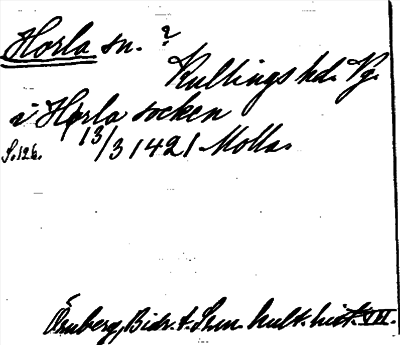 Horla sn. ?
Kullings hd. Vg.
i Horla socken
13/3 1421 Molla.
S. 126.
Örnberg, Bidr. t. Sven. kult. hist. VII.